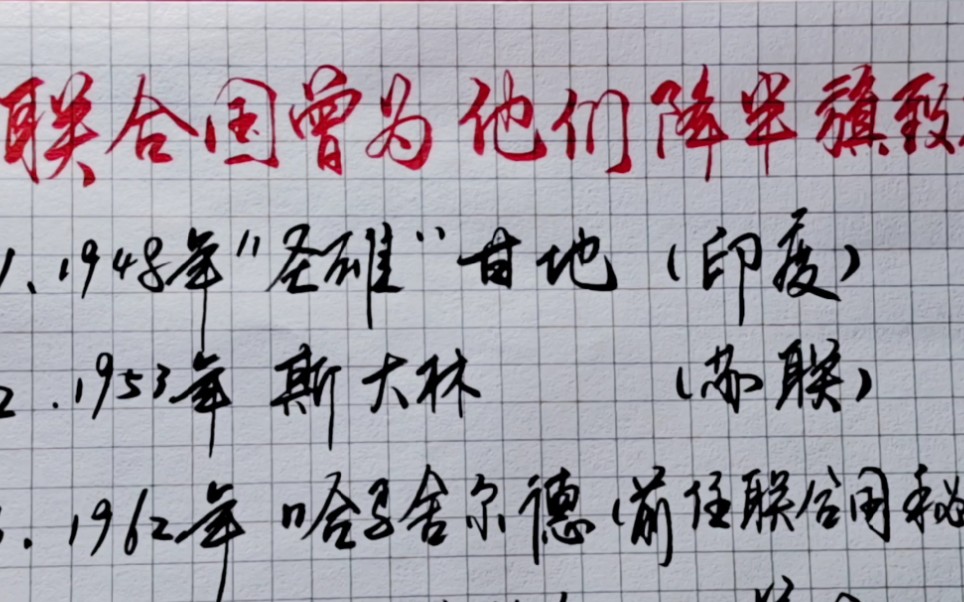 联合国曾为他们降半旗致
1、1948年"圣雄"甘地（印度）
2.1953年 斯大林（苏联）
.1962年 哈马舍尔德（前任联合国秘